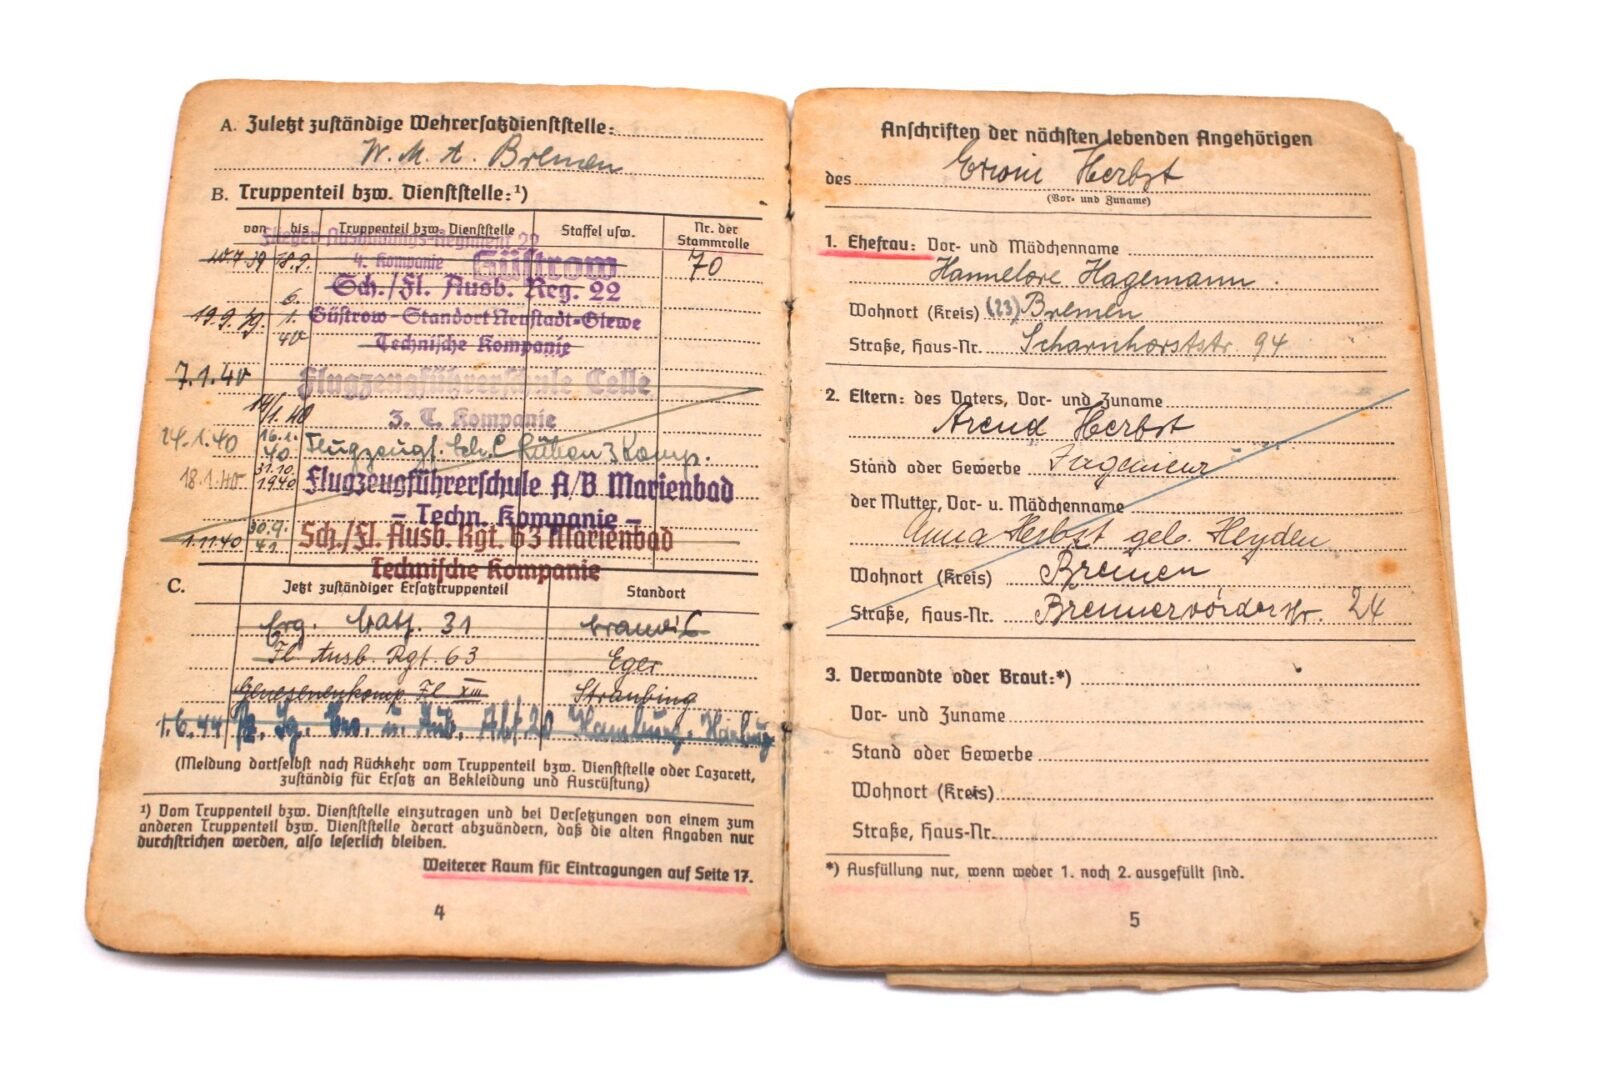 A. Zuletzt zuständige Wehrersatzdienststelle:
W. M. A. Bremen
B. Truppenteil bzw. Dienststelle:¹)
von bis Truppenteil bzw. Dienststelle Staffel usw. Nr. der Stammrolle
Flieger-Ausbildungs-Regiment 22
10.7.39 18.9. 4. Kompanie Güstrow 70
Sch./Fl. Ausb. Reg. 22
19.9.39. 6. 1. 40 Güstrow-Standort Neustadt-Glewe
Technische Kompanie
7.1.40 Flugzeugführerschule Celle
14/1. 40 3. T. Kompanie
14.1.40 16.1. 40 Flugzeugf. Sch. C 3 Komp.
18.1.40 31.10. 1940 Flugzeugführerschule A/B Marienbad
- Techn. Kompanie -
1.11.40 30.9. 41. Sch./Fl. Ausb. Rgt. 63 Marienbad
Technische Kompanie
C. Jetzt zuständiger Ersatztruppenteil Standort
Erg. Batl. 31
Fl Ausb. Rgt. 63 Eger
Genesenenkomp. Fl XIII Straubing
1.6.44 Abt 20 Hamburg-Harburg
(Meldung dortselbst nach Rückkehr vom Truppenteil bzw. Dienststelle oder Lazarett,
zuständig für Ersatz an Bekleidung und Ausrüstung)
¹) Vom Truppenteil bzw. Dienststelle einzutragen und bei Versetzungen von einem zum
anderen Truppenteil bzw. Dienststelle derart abzuändern, daß die alten Angaben nur
durchstrichen werden, also leserlich bleiben.
Weiterer Raum für Eintragungen auf Seite 17.
4
Anschriften der nächsten lebenden Angehörigen
des Erwin Herbst
(Vor- und Zuname)
1. Ehefrau: Vor- und Mädchenname
Hannelore Hagemann.
Wohnort (Kreis) (23) Bremen
Straße, Haus-Nr. Scharnhorststr. 94
2. Eltern: des Vaters, Vor- und Zuname
Arend Herbst
Stand oder Gewerbe Ingenieur
der Mutter, Vor- u. Mädchenname
Anna Herbst geb. Heyden
Wohnort (Kreis) Bremen
Straße, Haus-Nr. Bremervörderstr. 24
3. Verwandte oder Braut:*)
Vor- und Zuname
Stand oder Gewerbe
Wohnort (Kreis)
Straße, Haus-Nr.
*) Ausfüllung nur, wenn weder 1. noch 2. ausgefüllt sind.
5